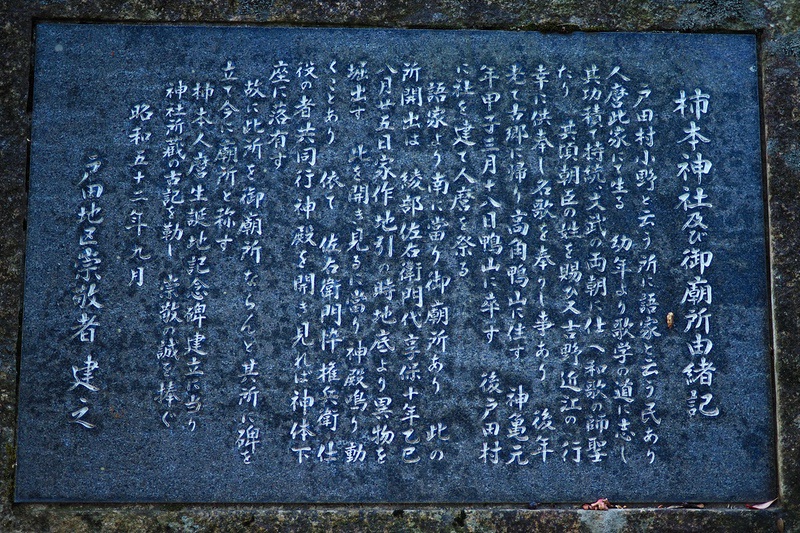 柿本神社及び御廟所由緒記
戸田村小野と云う所に語家と云う民あり
人麿此家にて生る 幼年より歌学の道に志し
其功積て持統 文武の両朝に仕へ和歌の師聖
たり 其頃朝臣の姓を賜か又吉野 近江の 行
幸に供奉し名歌を奉りし事あり 後年
老て古郷に帰り高角鴨山に住す 神亀元
年甲子三月十八日鴨山に卒す 後戸田村
に社を建て人麿を祭る
語家より南に當り御廟所あり 此の
所開出は 綾部佐右衛門代享保十年乙巳
八月廿五日家作地引の時地底より異物を
堀出す 此を開き見るに當り神殿鳴り動
くことあり 依て 佐右衛門忰権兵衛 仕
役の者共同行神殿を開き見れば神体下
座に落有す
故に此所を御廟所ならんと其所に碑を
立て今に廟所と称す
柿本人麿生誕地記念碑建立に当り
神社所蔵の古記を勒し 崇敬の誠を捧ぐ
昭和五十二年 九月
戸田地区崇敬者 建之